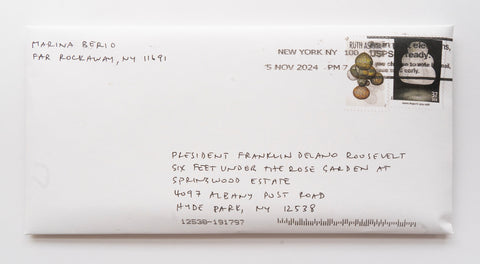 MARINA BERIO
FAR ROCKAWAY, NY 11691
NEW YORK NY 100
5 NOV 2024 PM 7
RUTH ASAWA
USPS
ready.
early.
PRESIDENT FRANKLIN DELANO ROOSEVELT
SIX FEET UNDER THE ROSE GARDEN AT
SPRINGWOOD ESTATE
4097 ALBANY POST ROAD
HYDE PARK, NY 12538
12538-191797